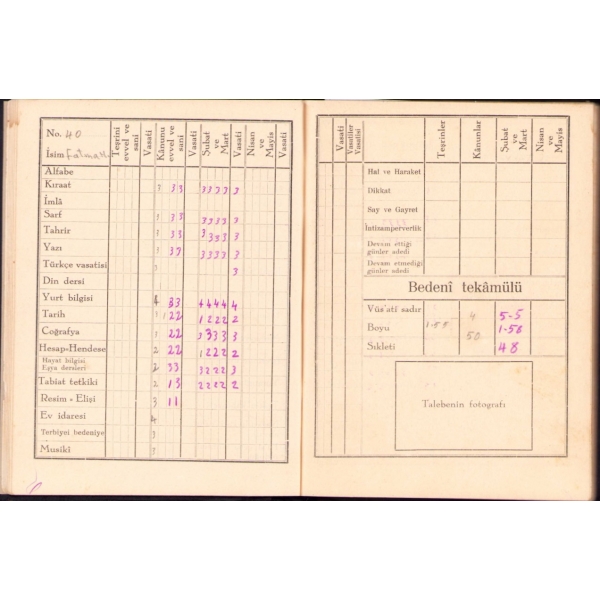 No. 40
İsim
Teşrini evvel ve sani
Vasati
Kânunu evvel ve sani
Vasati
Şubat ve Mart
Vasati
Nisan ve Mayis
Vasati
Alfabe
Kıraat 3 33 3333 3
İmlâ
Sarf 3 33 3333 3
Tahrir 3 33 3333 3
Yazı 3 33 3333 3
Türkçe vasatisi 3 3
Din dersi
Yurt bilgisi 4 33 4444 4
Tarih 22 1222 2
Coğrafya 3 22 3333 3
Hesap=Hendese 2 22 1222 2
Hayat bilgisi
Eşya dersleri 2 33 3222 3
Tabiat tetkiki 2 13 2222 2
Resim - Elişi 3 11
Ev idaresi 4
Terbiyei bedeniye 3
Musikî 3
Vasati
Vasatiler Vasatisi
Teşrinler
Kânunlar
Şubat ve Mart
Nisan ve Mayis
Hal ve Haraket
Dikkat
Say ve Gayret
İntizamperverlik
Devam ettiği
günler adedi
Devam etmediği
günler adedi
Bedenî tekâmülü
Vüs'ati sadır 4 5-5
Boyu 1-55 1-56
Sıkleti 50 48
Talebenin fotografı